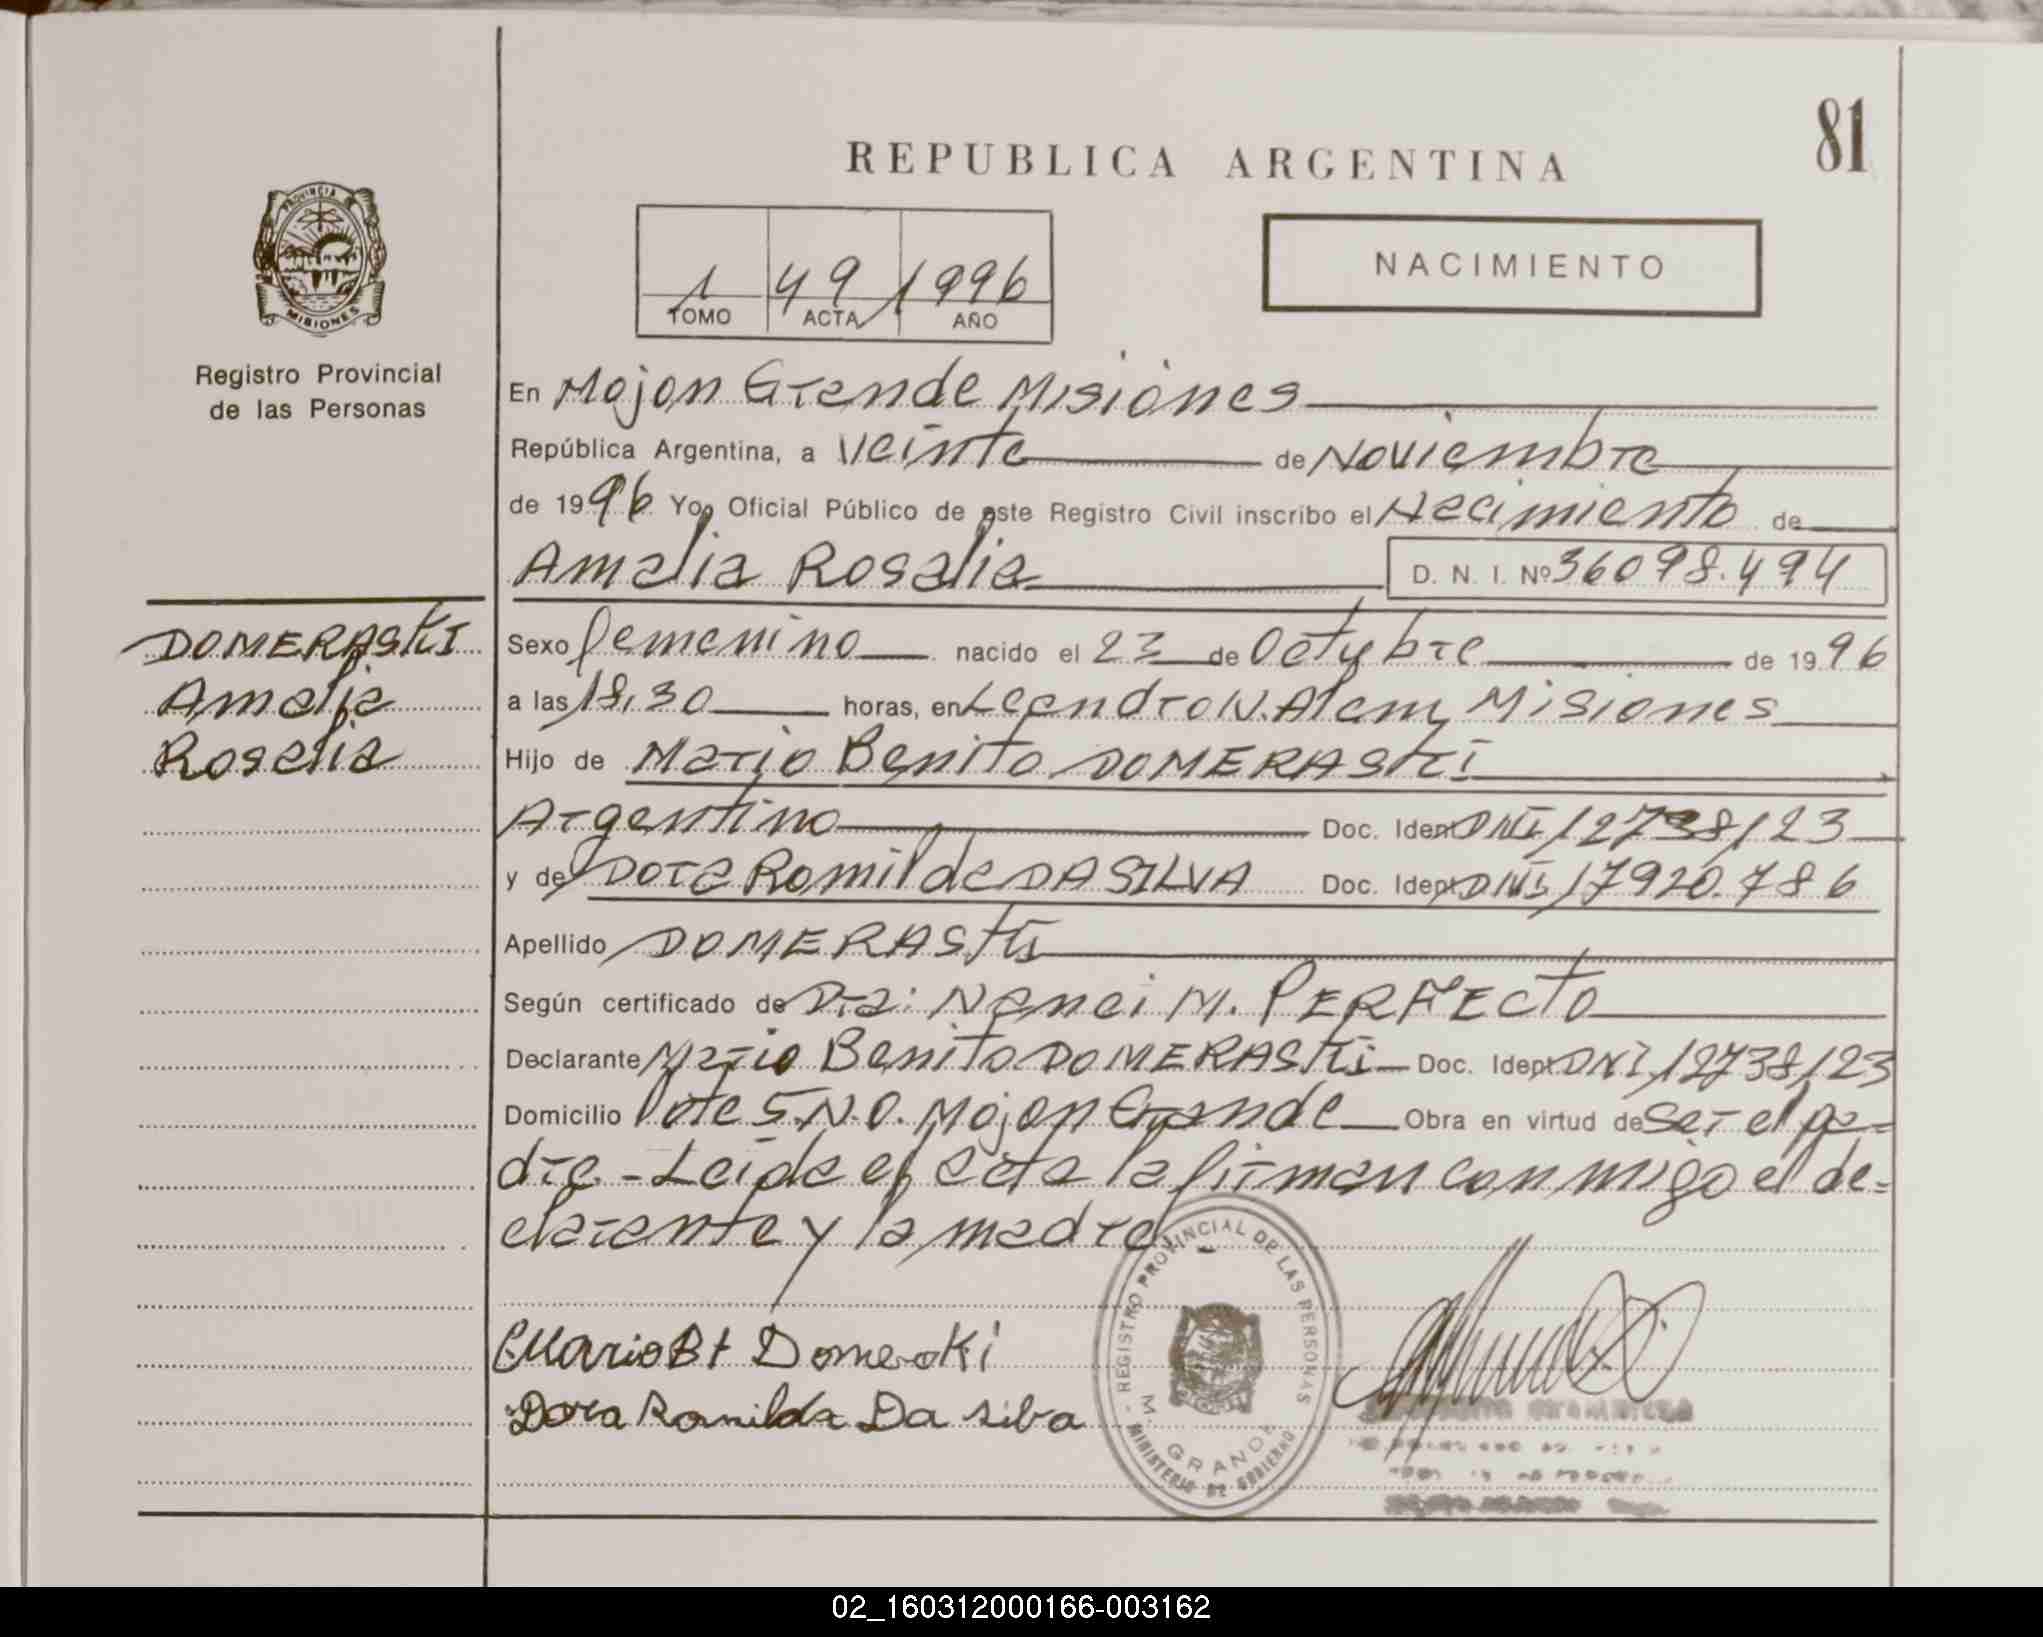 81
REPUBLICA ARGENTINA
PROVINCIA DE
MISIONES
1 49 1996
TOMO ACTA AÑO
NACIMIENTO
Registro Provincial
de las Personas
En Mojon Grande Misiones
República Argentina, a Veinte de Noviembre
de 1996 Yo, Oficial Público de este Registro Civil inscribo el Nacimiento de
Amalia Rosalia D. N. I. Nº 36098.494
DOMERASKI
Amalia
Rosalia
Sexo femenino nacido el 23 de Octubre de 1996
a las 18,30 horas, en Leandro N. Alem, Misiones
Hijo de Mario Benito DOMERASKI
Argentino Doc. Ident DNI 12738123
y de Dora Romilda DA SILVA Doc. Ident DNI 17920.786
Apellido DOMERASKI
Según certificado de Dra: Nanci M. PERFECTO
Declarante Mario Benito DOMERASKI Doc. Ident DNI 12738123
Domicilio lote S.N.O. Mojon Grande Obra en virtud de ser el pa=
dre.- Leida el acta la firman con migo el de=
clarante y la madre.-
Mario Bt Domeraki
Dora Romilda Da silva
REGISTRO PROVINCIAL DE LAS PERSONAS
M. GRANDE
MINISTERIO DE GOBIERNO
02_160312000166-003162